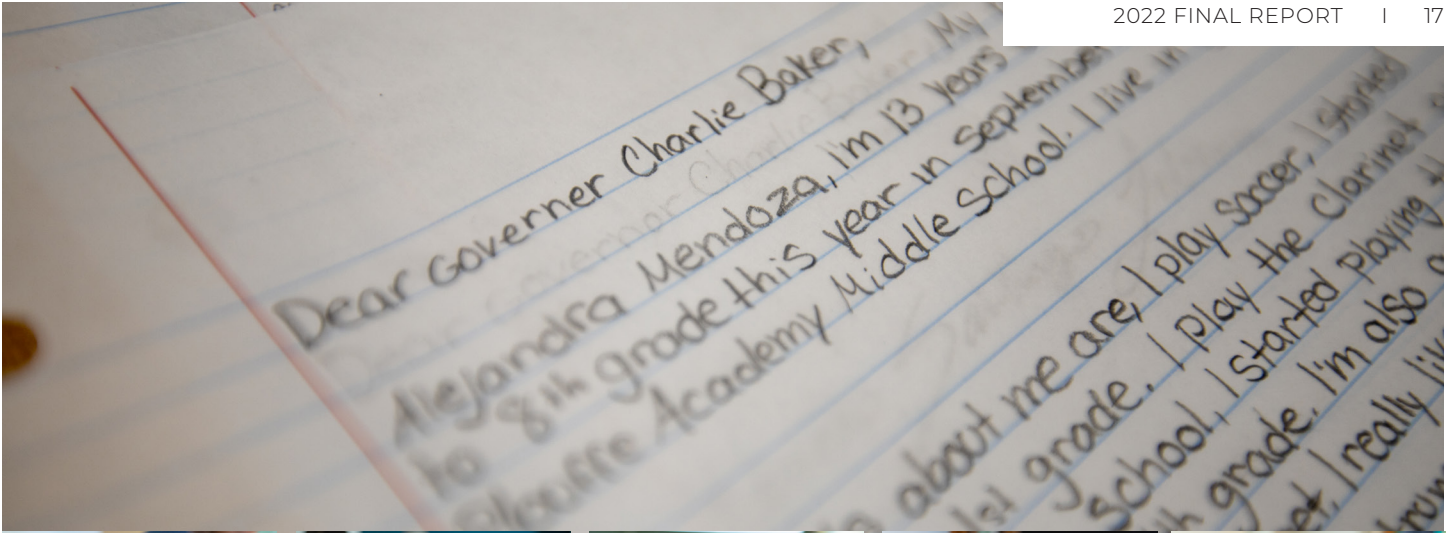 2022 FINAL REPORT | 17
Dear Governer Charlie Baker,
My
Alejandra Mendoza, I'm 13 years
to 8th grade this year in September
Plouffe Academy Middle School. I live in
about me are, I play Soccer, I started
1st grade. I play the Clarinet
school, I started playing
grade. I'm also a
I really